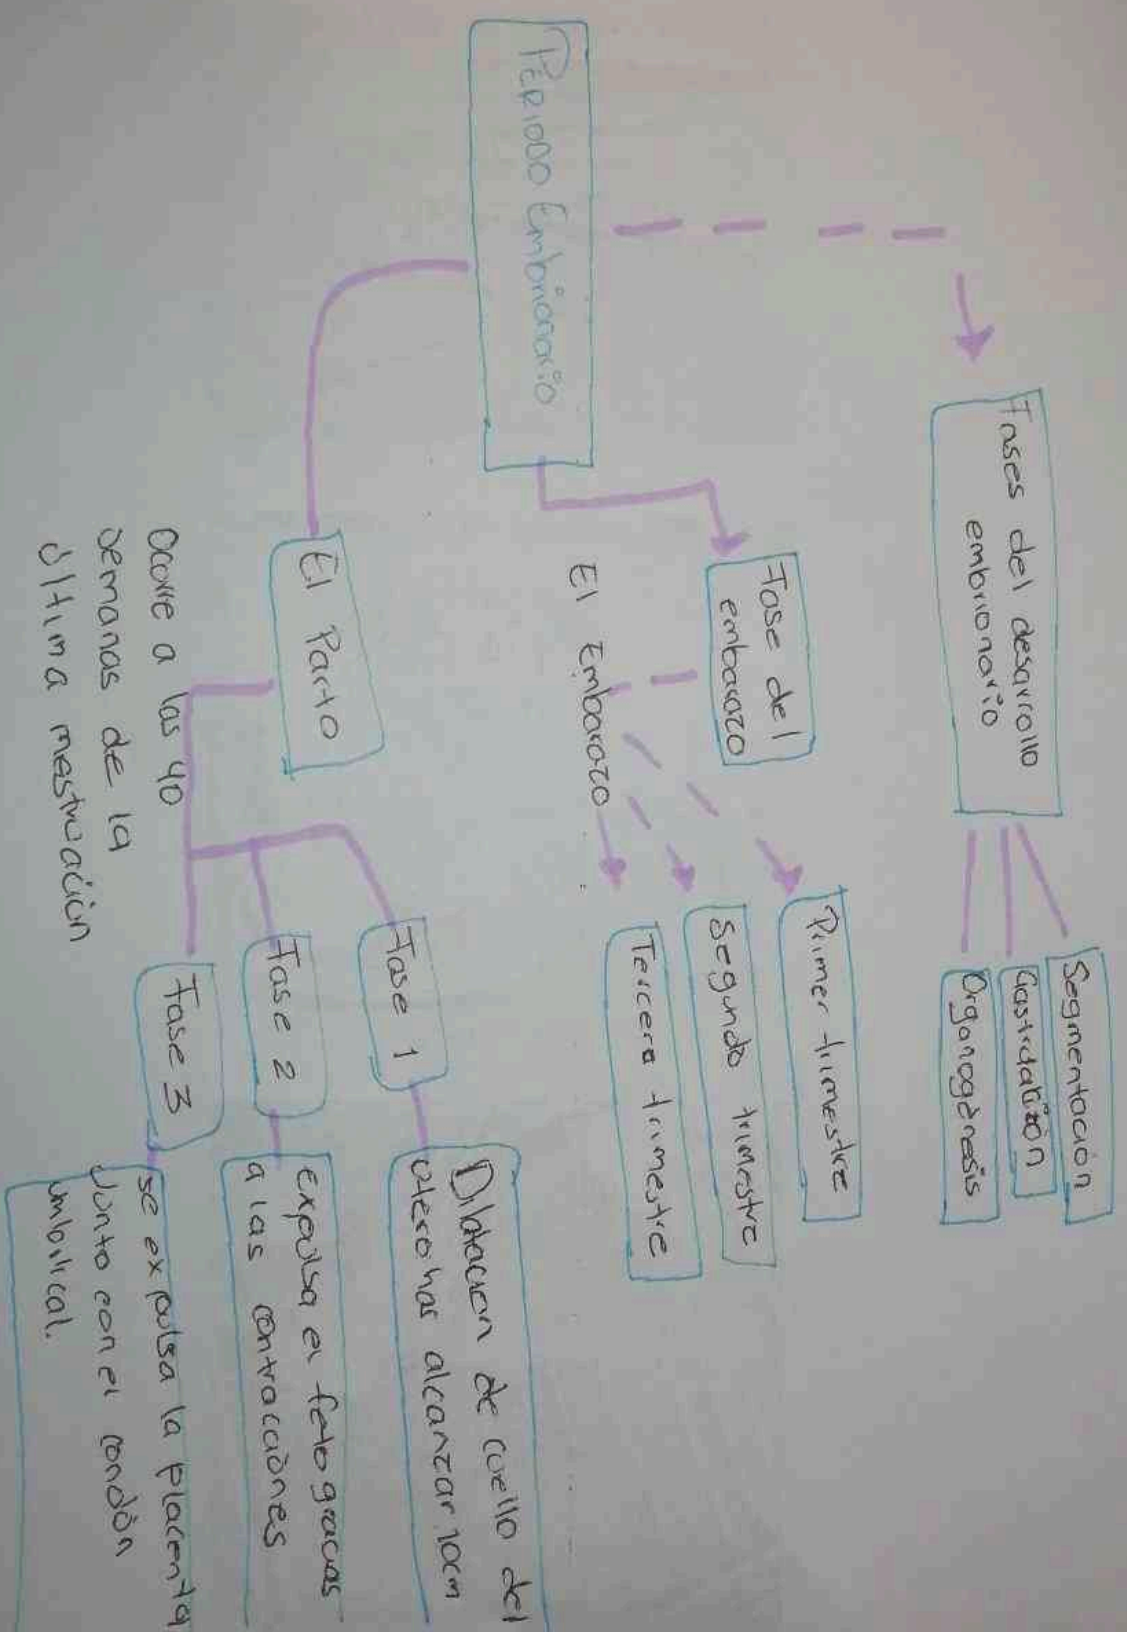 PERIODO Embrionario
Fases del desarrollo
embrionario
Segmentación
Gastrulación
Organogénesis
Fase del
embarazo
El Embarazo
Primer trimestre
Segundo trimestre
Tercero trimestre
El Parto
Ocorre a las 40
semanas de la
última mestruación
Fase 1
Dilatacion de cuello del
utero has alcanzar 10cm
Fase 2
expulsa el feto gracias
a las contracciónes
Fase 3
se expulsa la placenta
Junto con el condón
umbilical.